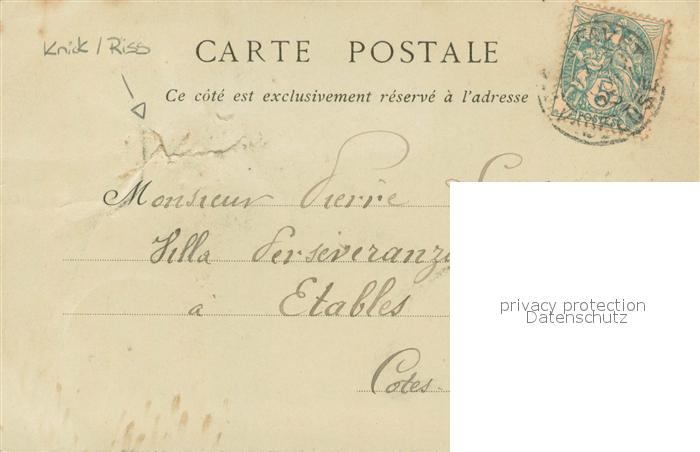 Knick / Riss
CARTE POSTALE
Ce côté est exclusivement réservé à l'adresse
POSTES
Monsieur Pierre
Villa Perseveranza
à Etables
Cotes-
privacy protection
Datenschutz